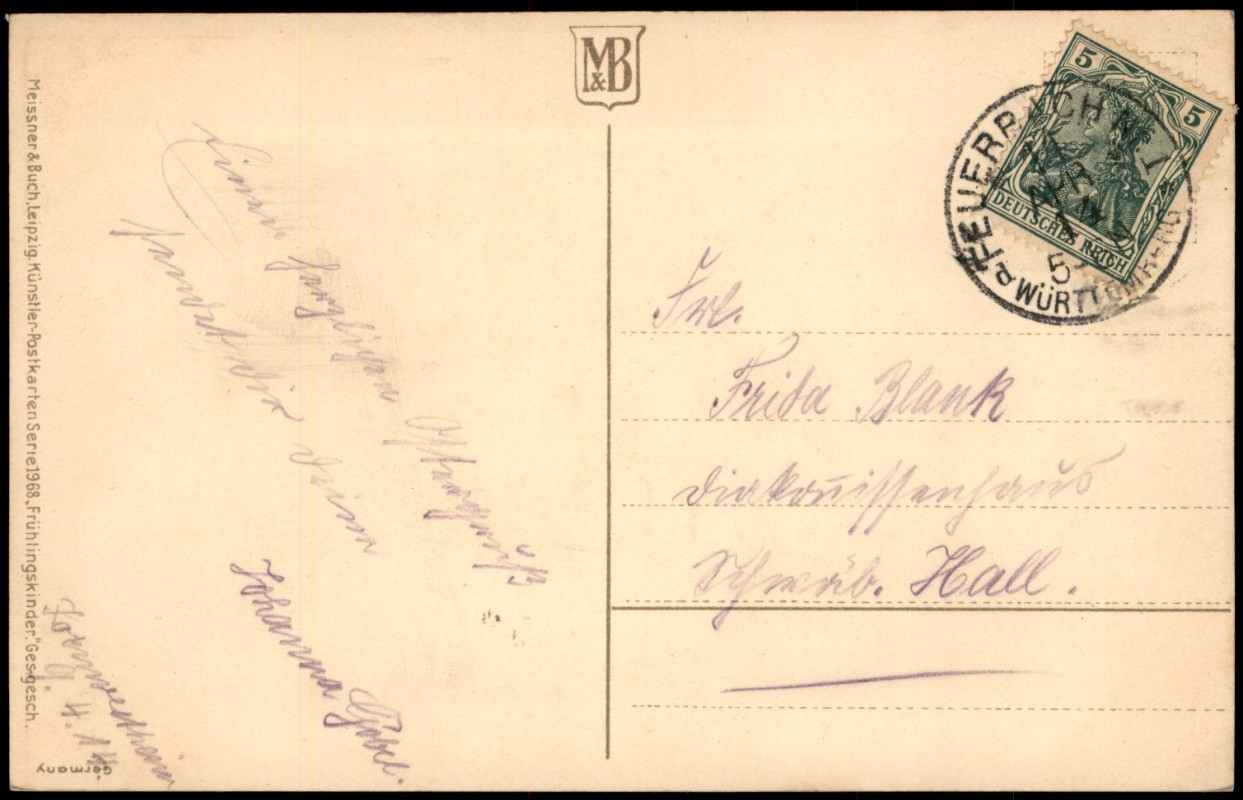 Meissner & Buch, Leipzig. Künstler-Postkarten Serie 1968. „Frühlingskinder." Ges. gesch.
M&B
5 5
DEUTSCHES REICH
FEUERBACH
11 APR
WÜRTTEMBERG
Einen herzlichen Ostergruß
sendet dir deine
Johanna Göbel.
4. 14.
Germany
Frl.
Frida Blank
Diakonissenhaus
Schwäb. Hall.